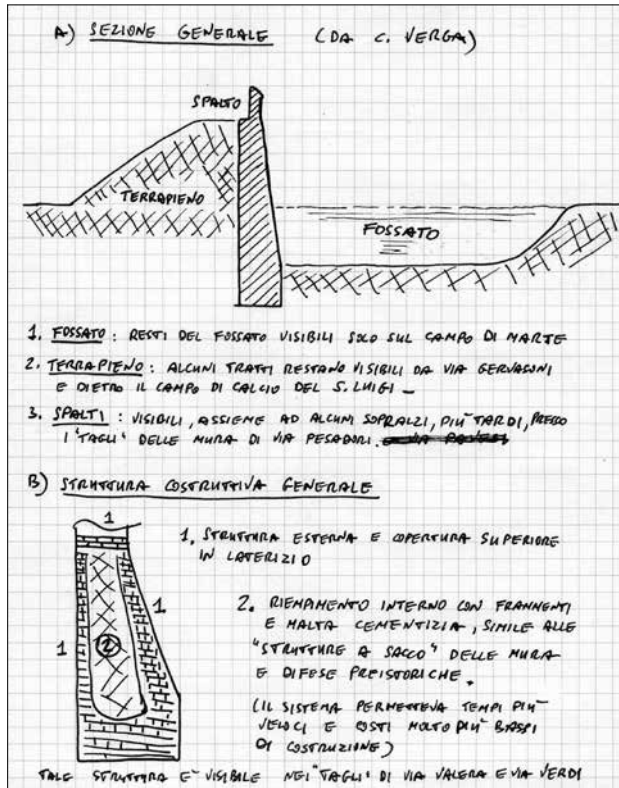 A) SEZIONE GENERALE (DA C. VERGA)
SPALTO
TERRAPIENO
FOSSATO
1. FOSSATO : RESTI DEL FOSSATO VISIBILI SOLO SUL CAMPO DI MARTE
2. TERRAPIENO : ALCUNI TRATTI RESTANO VISIBILI DA VIA GERVASONI
E DIETRO IL CAMPO DI CALCIO DEL S. LUIGI _
3. SPALTI : VISIBILI, ASSIEME AD ALCUNI SOPRALZI, PIU' TARDI, PRESSO
I "TAGLI" DELLE MURA DI VIA PESADORI.
B) STRUTTURA COSTRUTTIVA GENERALE
1
1
1
2
1. STRUTTURA ESTERNA E COPERTURA SUPERIORE
IN LATERIZIO
2. RIEMPIMENTO INTERNO CON FRAMMENTI
E MALTA CEMENTIZIA, SIMILE ALLE
"STRUTTURE A SACCO" DELLE MURA
E DIFESE PREISTORICHE.
(IL SISTEMA PERMETTEVA TEMPI PIU'
VELOCI E COSTI MOLTO PIU' BASSI
DI COSTRUZIONE)
TALE STRUTTURA E' VISIBILE NEI "TAGLI" DI VIA VALERA E VIA VERDI